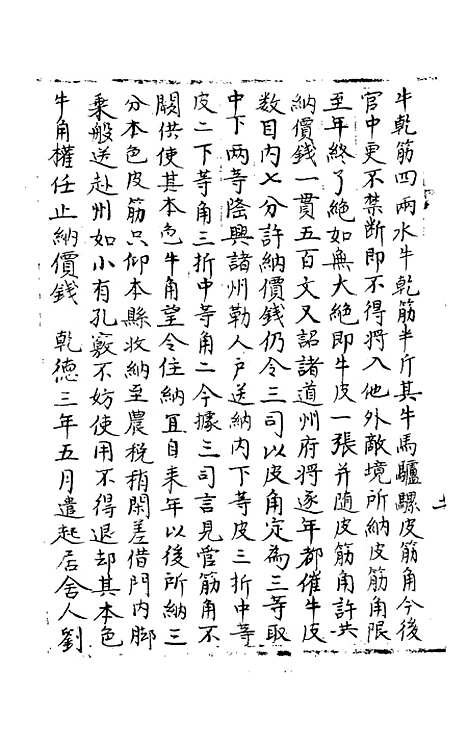 牛乾筋四兩水牛乾筋半斤其牛馬驢騾皮筋角今後
官中更不禁断即不得將入他外敵境所納皮筋角限
至年終了絶如無大絶即牛皮一張并随皮筋角許共
納價錢一貫五百文又詔諸道州府將逐年都催牛皮
数目内七分許納價錢仍令三司以皮角定為三等取
中下两等隆興諸州勒人户送納内下等皮三折中等
皮二下等角三折中等角二今據三司言見管筋角不
闕供使其本色牛角望令住納宜自来年以後所納三
分本色皮筋只仰本縣收納至農税稍閑差借門内脚
乗般送赴州如小有孔竅不妨使用不得退却其本色
牛角權任止納價錢　乾德三年五月遣起居舍人劉